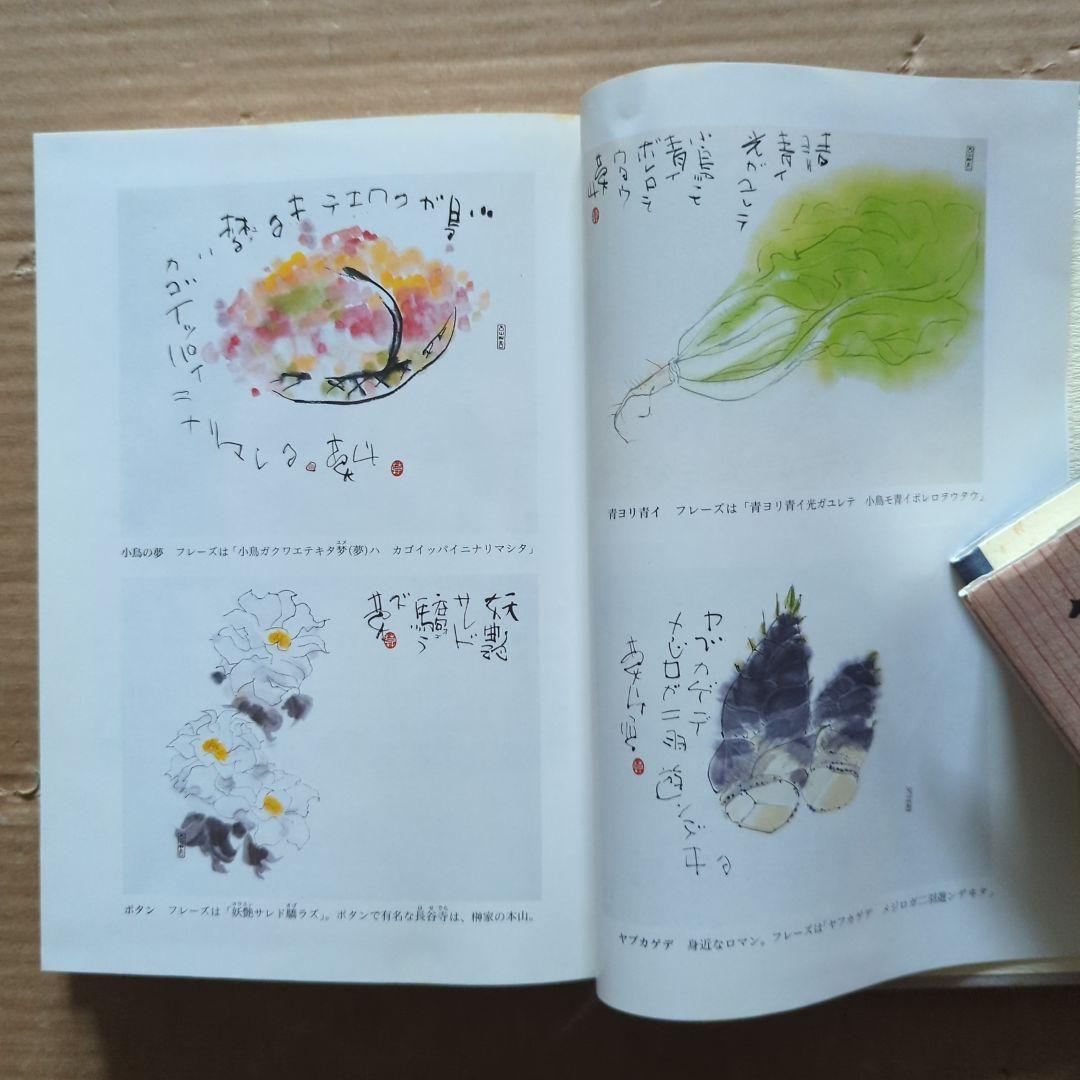 小鳥ガクワエテキタ
梦ハ
カゴイッパイニナリマシタ
小鳥の夢　フレーズは「小鳥ガクワエテキタ梦(夢)ハ　カゴイッパイニナリマシタ」
ユメ
妖艶
サレド
驕ラ
ズ
ボタン　フレーズは「妖艶サレド驕ラズ」。ボタンで有名な長谷寺は、榊家の本山。
青ヨリ
青イ
光ガユレテ
小鳥モ
青イ
ボレロヲ
ウタウ
青ヨリ青イ　フレーズは「青ヨリ青イ光ガユレテ　小鳥モ青イボレロヲウタウ」
ヤブカゲデ
メジロガ二羽遊ンデキタ
ヤブカゲデ　身近なロマン。フレーズは「ヤブカゲデ　メジロガ二羽遊ンデキタ」